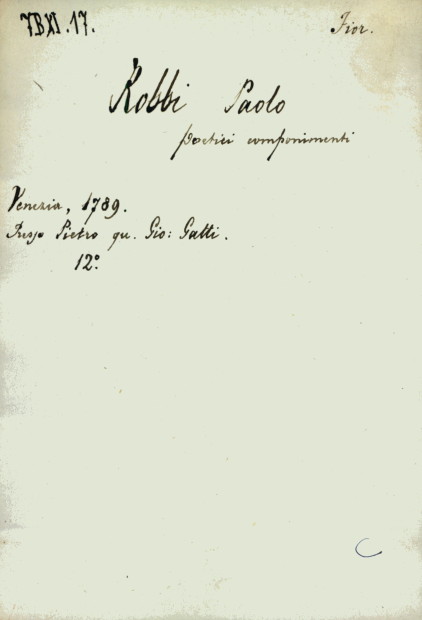 7BXI.17.
Fior.
Robbi Paolo
poetici componimenti
Venezia, 1789.
Presso Pietro qu. Gio: Gatti.
12º
C